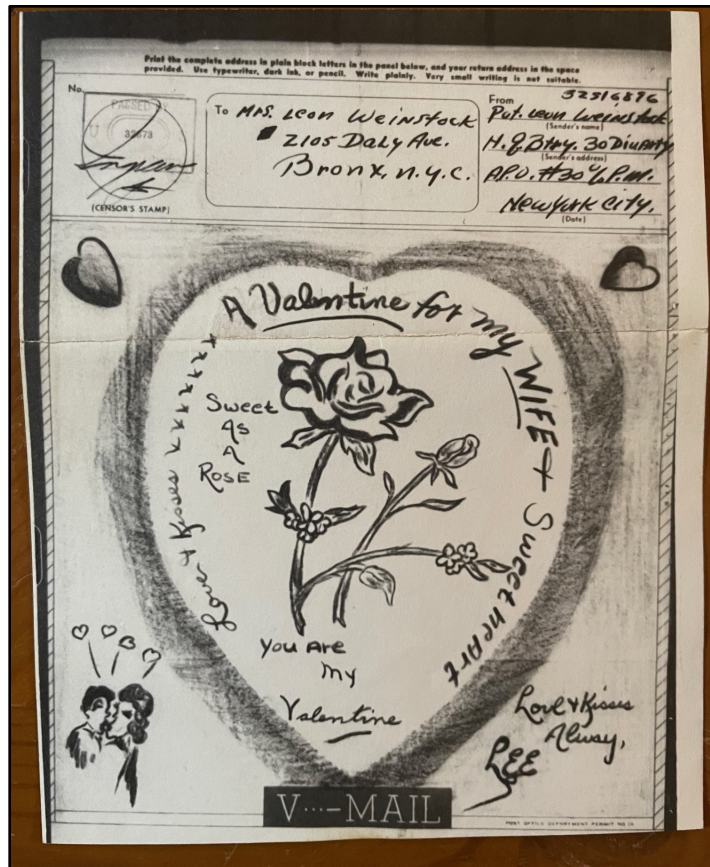 Print the complete address in plain block letters in the panel below, and your return address in the space
provided. Use typewriter, dark ink, or pencil. Write plainly. Very small writing is not suitable.
No.
PASSED BY
U
32673
(CENSOR'S STAMP)
To Mrs. Leon Weinstock
2105 Daly Ave.
Bronx, n.y.c.
From 32516896
Pvt. Leon Weinstock
(Sender's name)
H.Q Btry. 30 DivArty
(Sender's address)
A.P.O. #30 % P.M.
New York City.
(Date)
A Valentine for my WIFE + Sweetheart
Sweet
As
A
Rose
Love & Kisses xxxxxxx
You Are
my
Valentine
Love & Kisses
Alway,
LEE
V···–MAIL
POST OFFICE DEPARTMENT PERMIT NO.